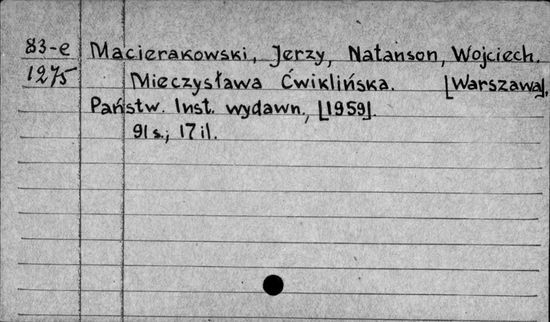 83-e Macierakowski, Jerzy, Natanson, Wojciech.
1275 Mieczysława Ćwiklińska. [Warszawa],
Państw. Inst. wydawn., [1959].
91 s., 17 il.